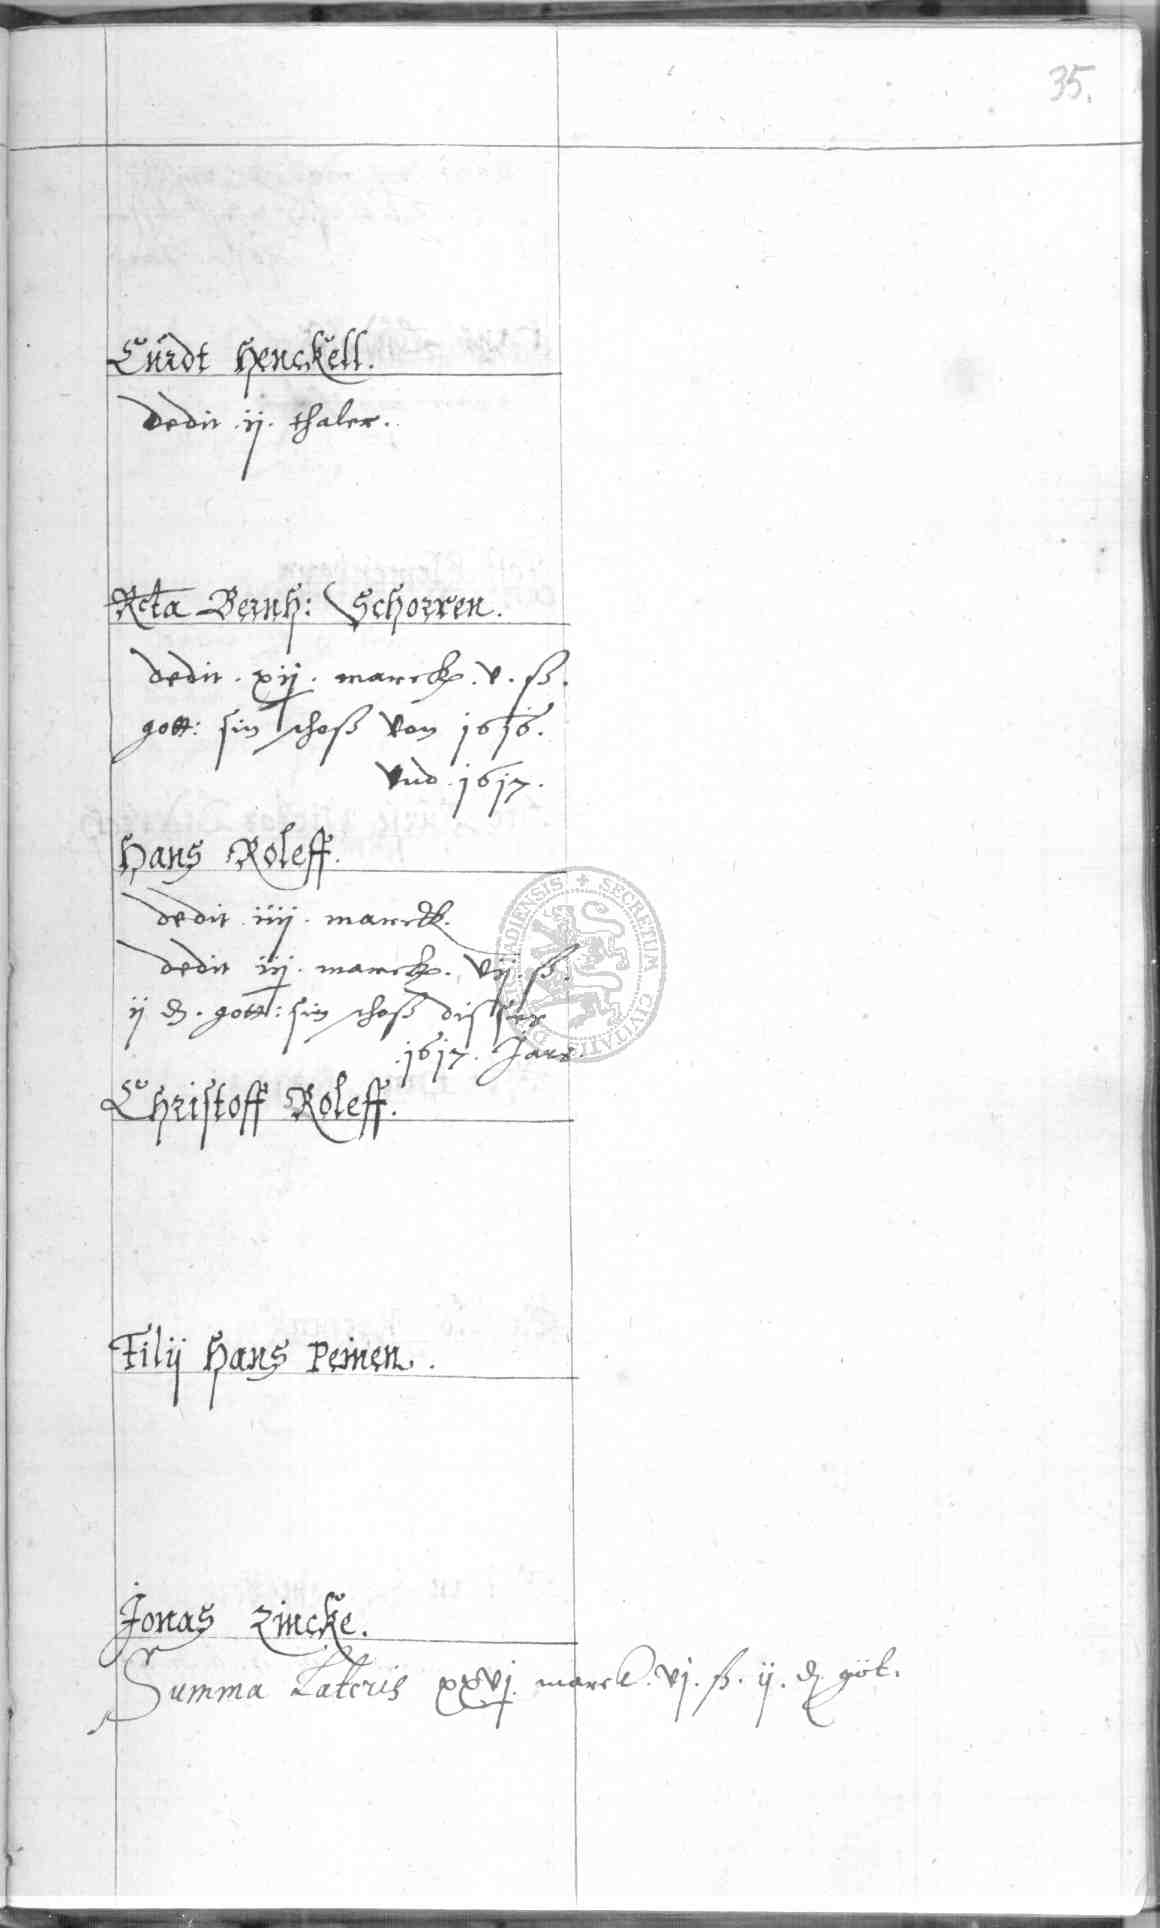 35.
Curdt Henckell.
dedit ij. thaler.
Rcta Bernh: Schorren.
dedit . xij . marck . v . ß .
gott: sin schoß von 1616.
vnd 1617.
Hans Roleff.
dedit iiij . marck.
dedit iij . marck . vij . ß .
ij d. gott: sin schoß disser
1617. Jars.
Christoff Roleff.
Filij Hans Peinen.
Jonas Zincke.
Summa Lateris xxvj. marck. vj. ß. ij. d. göt.
SECRETUM CIVITATIS